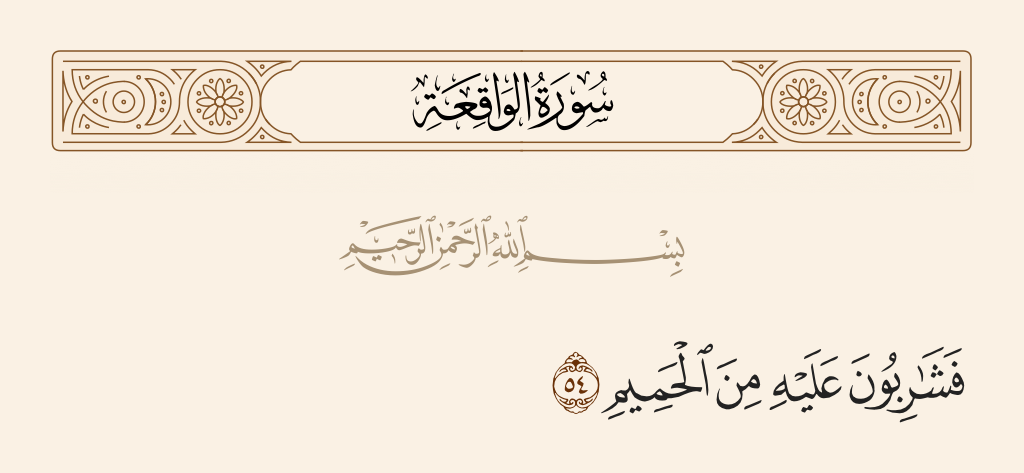 سُورَةُ الوَاقِعَةِ
بِسْمِ ٱللَّهِ ٱلرَّحْمَٰنِ ٱلرَّحِيمِ
فَشَٰرِبُونَ عَلَيْهِ مِنَ ٱلْحَمِيمِ ٥٤